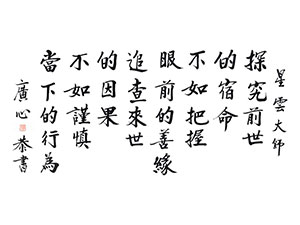 星雲大師
探究前世
的宿命
不如把握
眼前的善緣
追查來世
的因果
不如謹慎
當下的行為
廣心 恭書